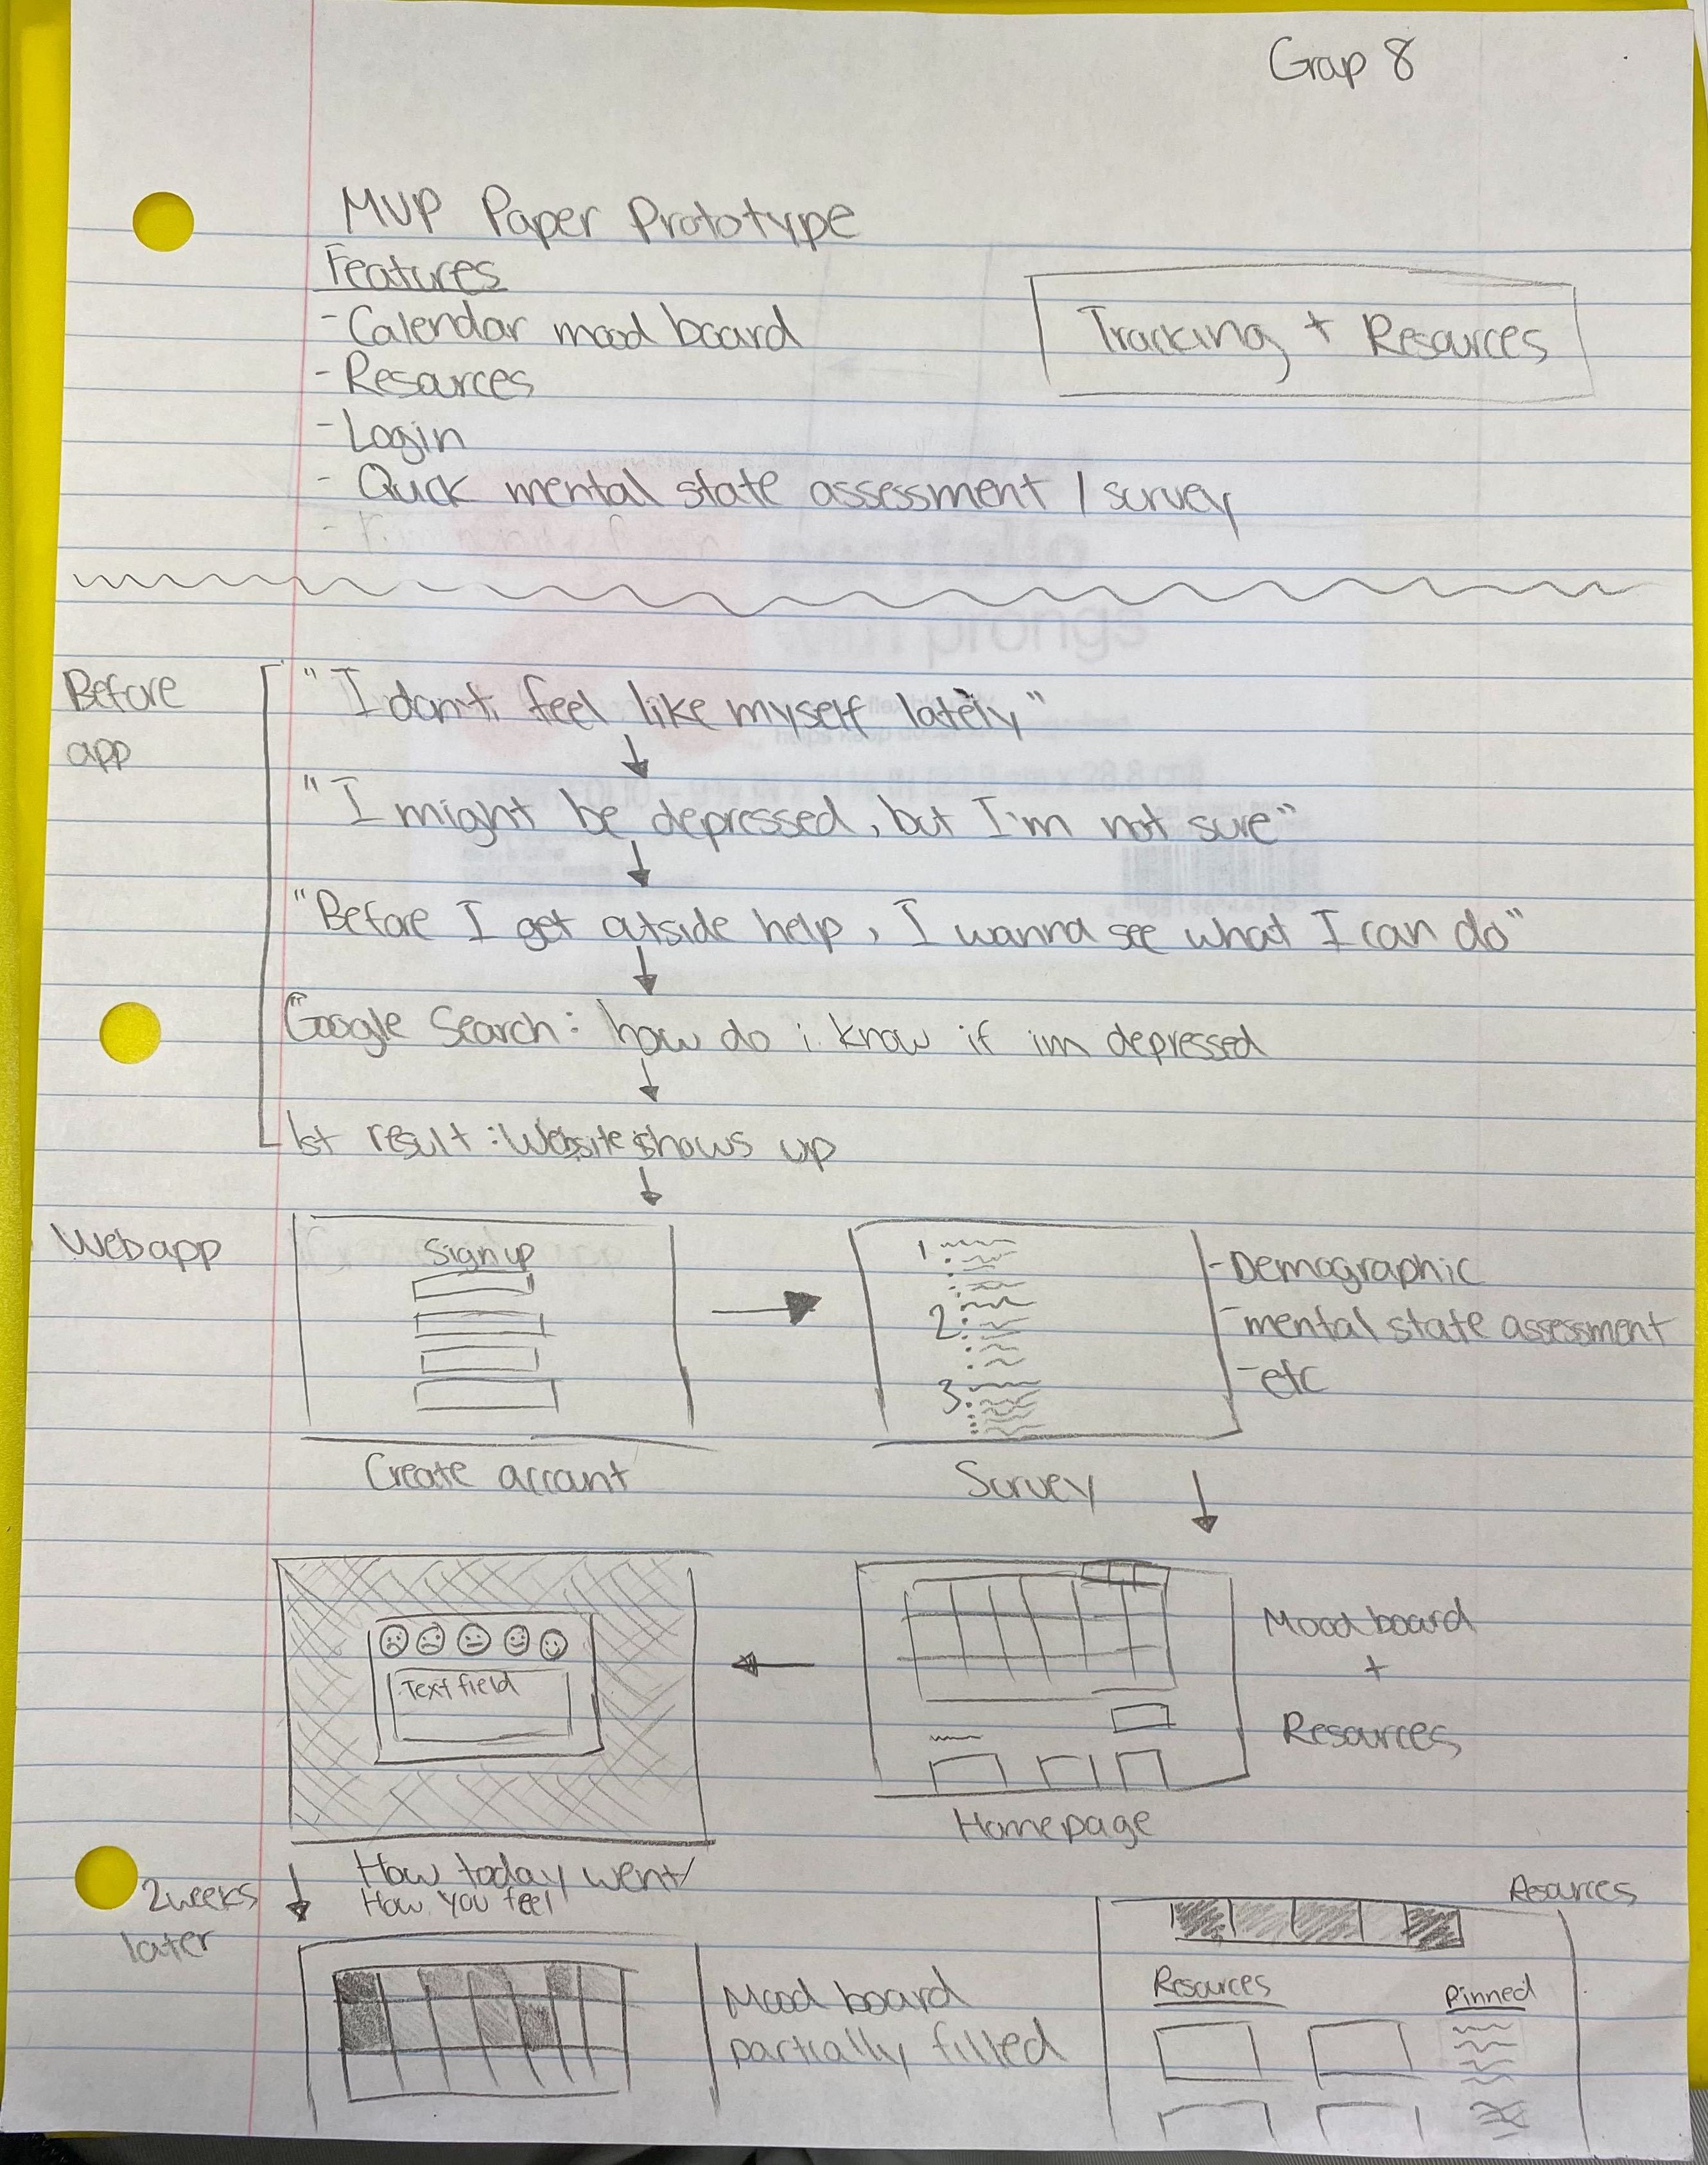 Group 8
MVP Paper Prototype
Features
- Calendar mood board
- Resources
- Login
- Quick mental state assessment / survey
Tracking + Resources
Before
app
"I don't feel like myself lately"
"I might be depressed, but I'm not sure"
"Before I get outside help, I wanna see what I can do"
"Google Search: how do i know if im depressed
1st result: Website shows up
Webapp
Sign up
Create account
1.
2.
3.
Survey
- Demographic
- mental state assessment
- etc
Text field
How today went/
How you feel
Homepage
Mood board
+
Resources
2 weeks
later
Mood board
partially filled
Resources
Resources
Pinned